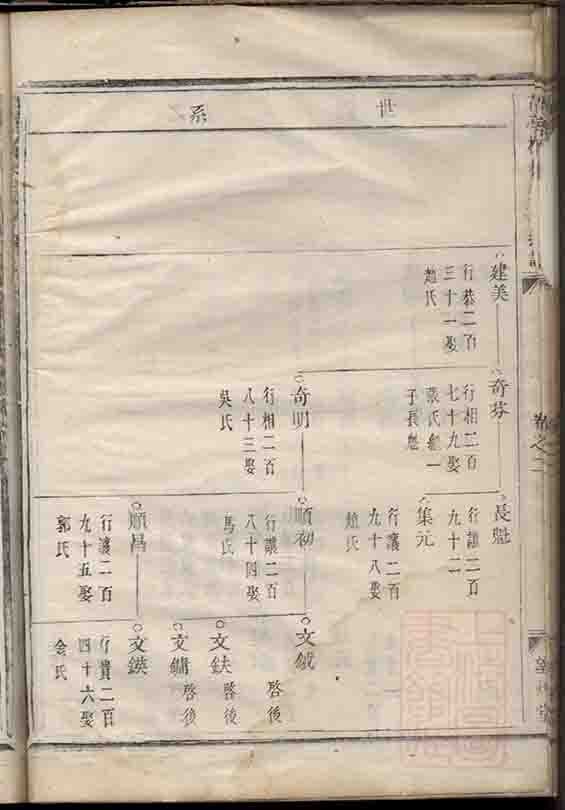 世系
建美
行恭二百
三十一娶
趙氏
奇芬
行相二百
七十九娶
張氏繼一
子長魁
奇明
行相二百
八十三娶
吳氏
長魁
行讓二百
九十二
集元
行讓二百
九十八娶
趙氏
順初
行讓二百
八十四娶
馬氏
順昌
行讓二百
九十五娶
郭氏
文鉞
啓後
文鈇
啓後
文鏞
啓後
文鍈
行貴二百
四十六娶
金氏
卷之二